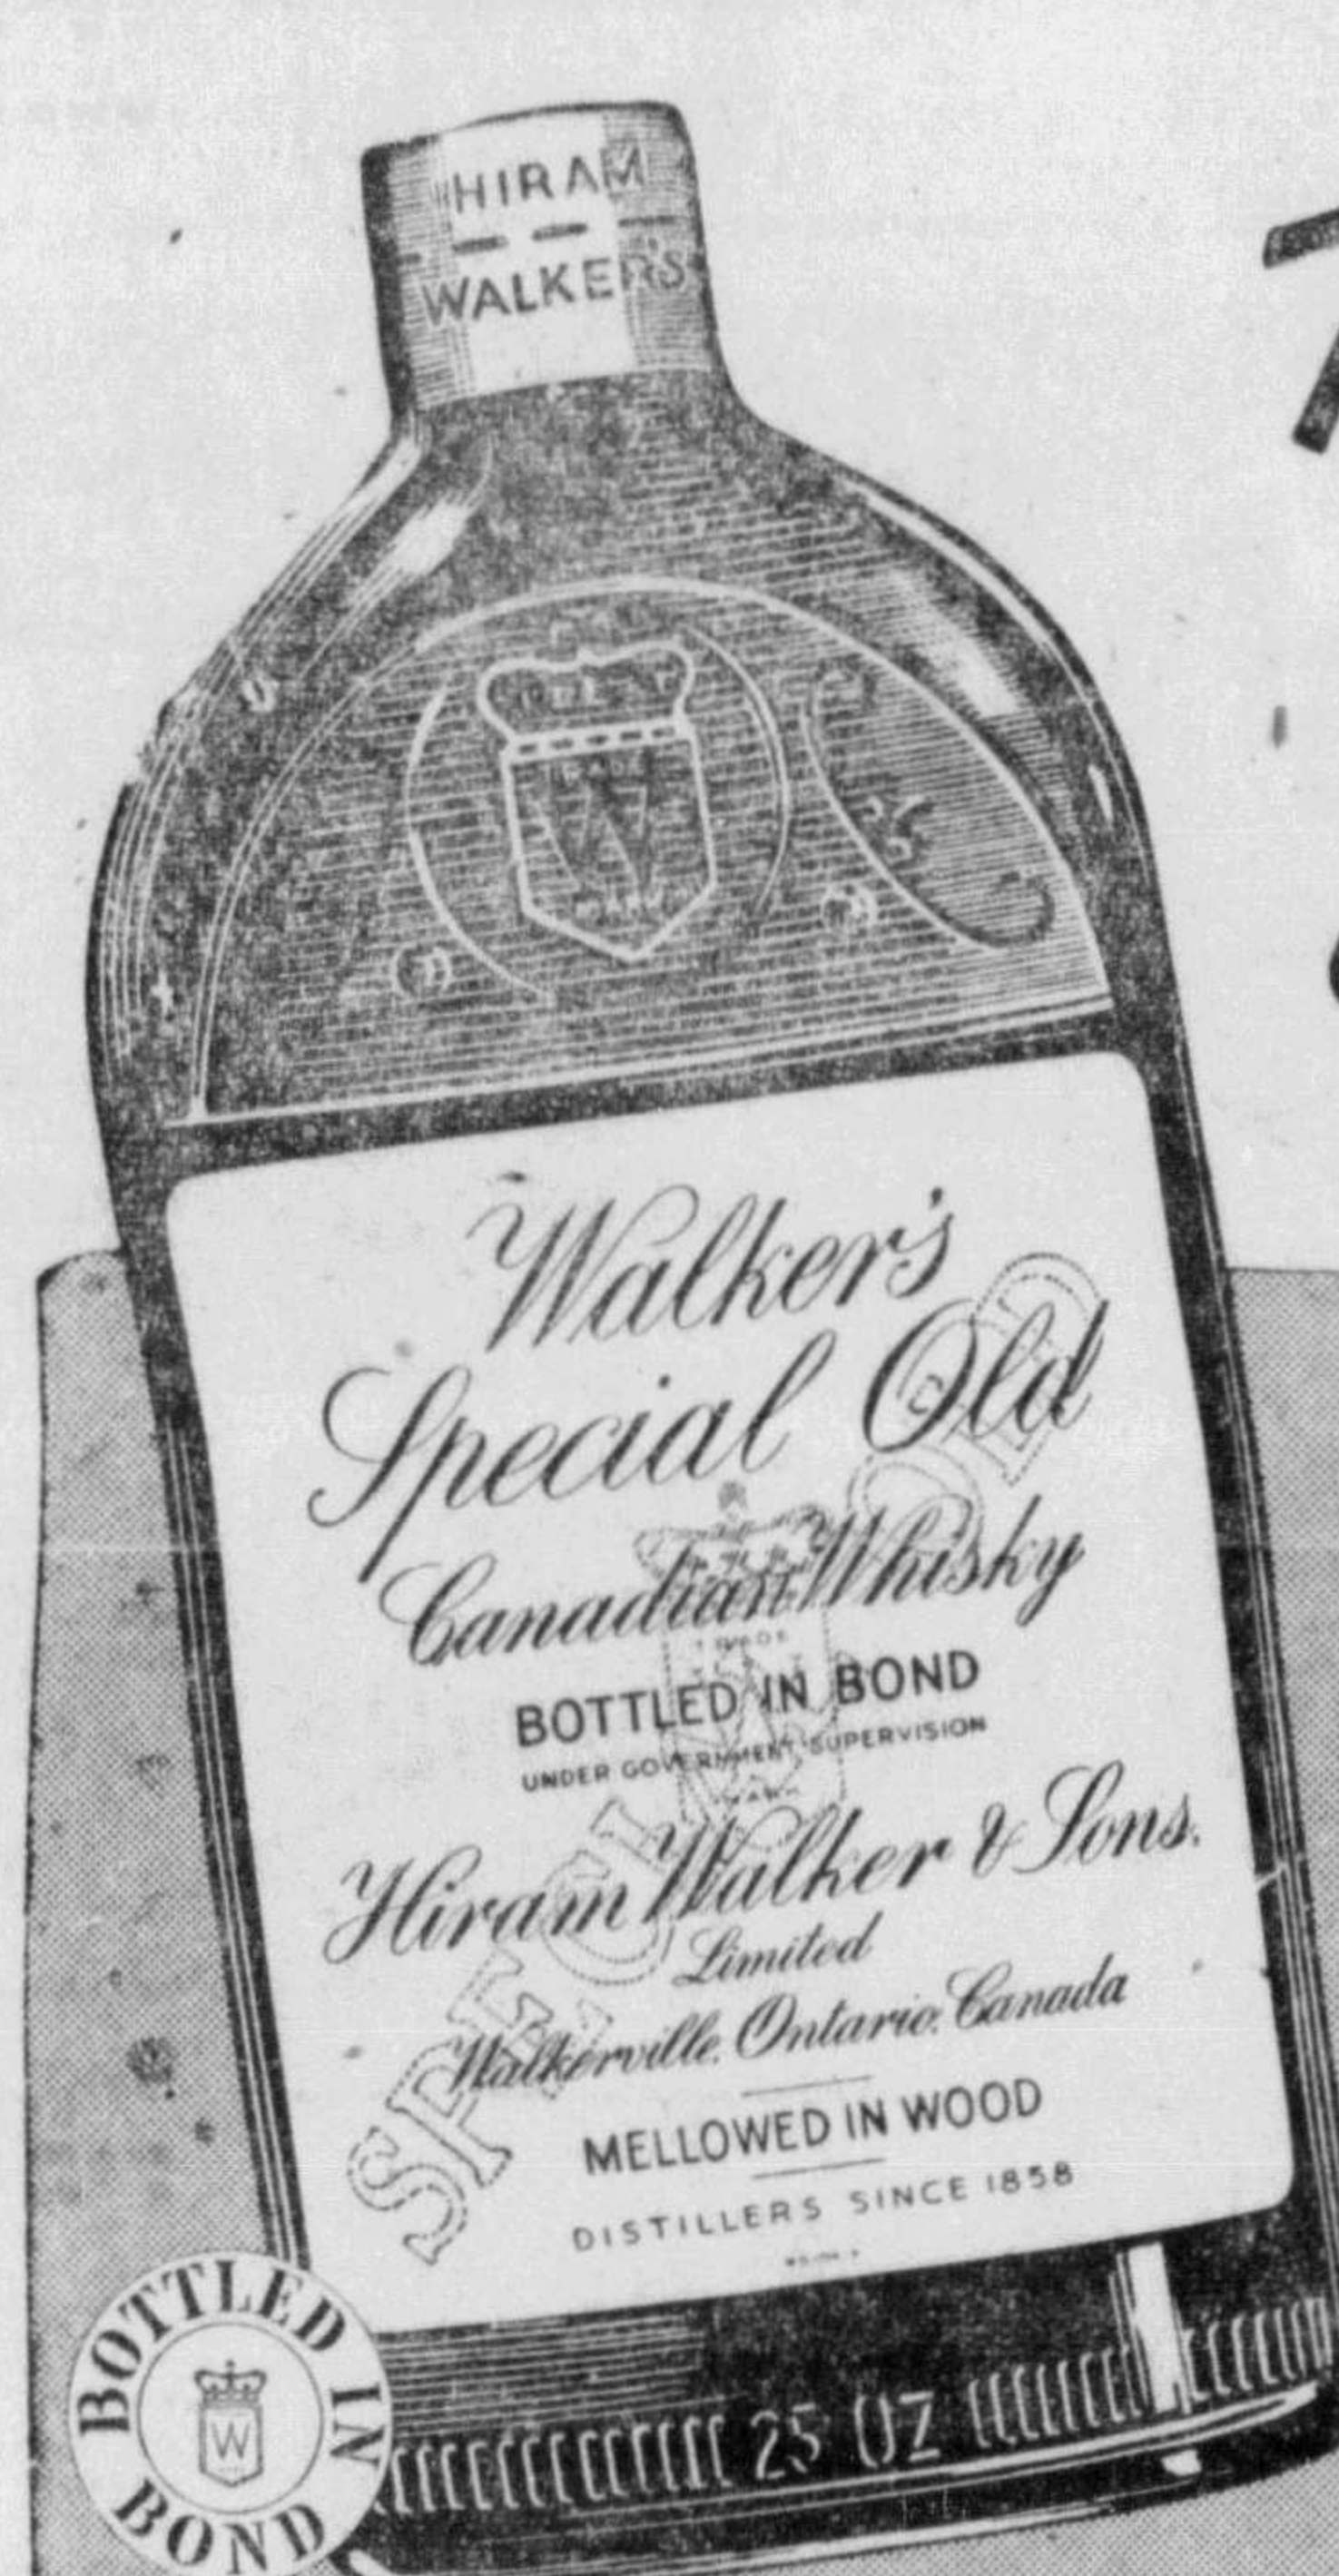 HIRAM
WALKER'S
TRADE
W
MARK
Walker's
Special Old
Canadian Whisky
TRADE
BOTTLED IN BOND
UNDER GOVERNMENT SUPERVISION
MARK
Hiram Walker & Sons.
Limited
Walkerville. Ontario. Canada
MELLOWED IN WOOD
DISTILLERS SINCE 1858
SPECIAL OLD
25 OZ
BOTTLED IN
W
BOND